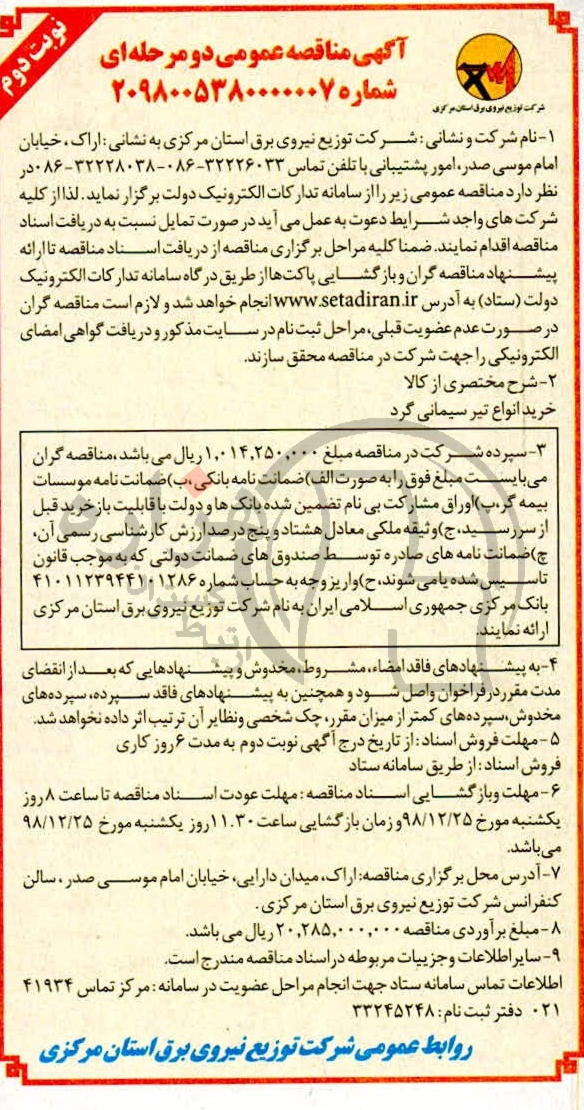 نوبت دوم
آگهی مناقصه عمومی دو مرحله‌ای
شماره ۲۰۹۸۰۰۵۳۸۰۰۰۰۰۰۷
شرکت توزیع نیروی برق استان مرکزی
۱-نام شرکت و نشانی : شرکت توزیع نیروی برق استان مرکزی به نشانی : اراک ، خیابان
امام موسی صدر، امور پشتیبانی با تلفن تماس ۳۲۲۲۶۰۳۳-۰۸۶-۳۲۲۲۸۰۳۸-۰۸۶در
نظر دارد مناقصه عمومی زیر را از سامانه تدارکات الکترونیک دولت برگزار نماید . لذا از کلیه
شرکت های واجد شرایط دعوت به عمل می آید در صورت تمایل نسبت به دریافت اسناد
مناقصه اقدام نمایند. ضمنا کلیه مراحل برگزاری مناقصه از دریافت اسناد مناقصه تا ارائه
پیشنهاد مناقصه گران و بازگشایی پاکت‌ها از طریق درگاه سامانه تدارکات الکترونیک
دولت (ستاد) به آدرس www.setadiran.ir انجام خواهد شد و لازم است مناقصه گران
در صورت عدم عضویت قبلی، مراحل ثبت نام در سایت مذکور و دریافت گواهی امضای
الکترونیکی را جهت شرکت در مناقصه محقق سازند.
۲-شرح مختصری از کالا
خرید انواع تیر سیمانی گرد
۳-سپرده شرکت در مناقصه مبلغ ۱,۰۱۴,۲۵۰,۰۰۰ ریال می باشد ،مناقصه گران
می‌بایست مبلغ فوق را به صورت الف)ضمانت نامه بانکی ،ب)ضمانت نامه موسسات
بیمه گر،پ)اوراق مشارکت بی نام تضمین شده بانک ها و دولت با قابلیت باز خرید قبل
از سررسید،ج)وثیقه ملکی معادل هشتاد و پنج درصد ارزش کارشناسی رسمی آن،
چ)ضمانت نامه های صادره توسط صندوق های ضمانت دولتی که به موجب قانون
تاسیس شده یا می شوند، ح)واریز وجه به حساب شماره ۴۱۰۱۱۲۳۹۴۴۱۰۱۲۸۶
بانک مرکزی جمهوری اسلامی ایران به نام شرکت توزیع نیروی برق استان مرکزی
ارائه نمایند.
۴-به پیشنهادهای فاقد امضاء، مشروط، مخدوش و پیشنهادهایی که بعد از انقضای
مدت مقرر در فراخوان واصل شود و همچنین به پیشنهادهای فاقد سپرده، سپرده‌های
مخدوش،سپرده‌های کمتر از میزان مقرر، چک شخصی و نظایر آن ترتیب اثر داده نخواهد شد.
۵- مهلت فروش اسناد : از تاریخ درج آگهی نوبت دوم به مدت ۶روز کاری
فروش اسناد : از طریق سامانه ستاد
۶-مهلت وبازگشایی اسناد مناقصه : مهلت عودت اسناد مناقصه تا ساعت ۸ روز
یکشنبه مورخ ۹۸/۱۲/۲۵و زمان بازگشایی ساعت ۱۱.۳۰ روز یکشنبه مورخ ۹۸/۱۲/۲۵
می‌باشد.
۷-آدرس محل برگزاری مناقصه: اراک، میدان دارایی، خیابان امام موسی صدر ، سالن
کنفرانس شرکت توزیع نیروی برق استان مرکزی .
۸-مبلغ برآوردی مناقصه ۲۰,۲۸۵,۰۰۰,۰۰۰ ریال می باشد.
۹-سایر اطلاعات و جزییات مربوطه در اسناد مناقصه مندرج است.
اطلاعات تماس سامانه ستاد جهت انجام مراحل عضویت در سامانه : مرکز تماس ۴۱۹۳۴
۰۲۱ دفتر ثبت نام : ۳۳۲۴۵۲۴۸
روابط عمومی شرکت توزیع نیروی برق استان مرکزی